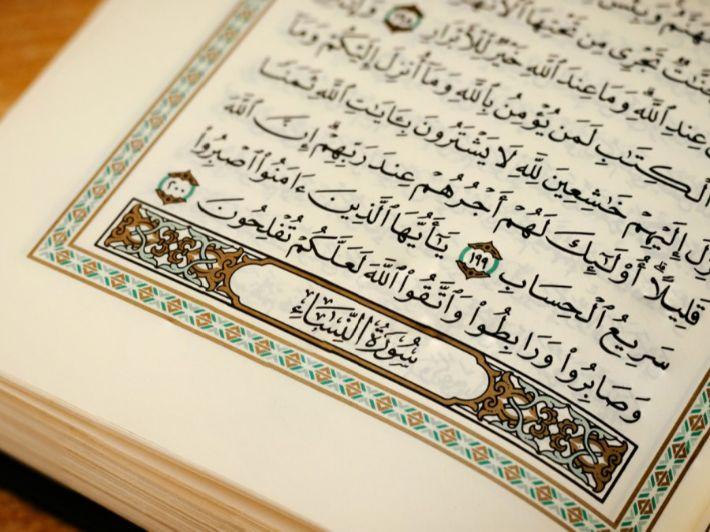 وَبِئْسَ
تَجْرِى مِن تَحْتِهَا ٱلْأَنْهَـٰرُ
عِندِ ٱللَّهِ ۗ وَمَا عِندَ ٱللَّهِ خَيْرٌ لِّلْأَبْرَارِ ١٩٨ وَإِنَّ
ٱلْكِتَـٰبِ لَمَن يُؤْمِنُ بِٱللَّهِ وَمَآ أُنزِلَ إِلَيْكُمْ وَمَآ
أُنزِلَ إِلَيْهِمْ خَـٰشِعِينَ لِلَّهِ لَا يَشْتَرُونَ بِـَٔايَـٰتِ ٱللَّهِ ثَمَنًا
قَلِيلًا ۗ أُو۟لَـٰٓئِكَ لَهُمْ أَجْرُهُمْ عِندَ رَبِّهِمْ ۗ إِنَّ ٱللَّهَ
سَرِيعُ ٱلْحِسَابِ ١٩٩ يَـٰٓأَيُّهَا ٱلَّذِينَ ءَامَنُوا۟ ٱصْبِرُوا۟
وَصَابِرُوا۟ وَرَابِطُوا۟ وَٱتَّقُوا۟ ٱللَّهَ لَعَلَّكُمْ تُفْلِحُونَ ٢٠٠
سُورَةُ النِّسَاءِ